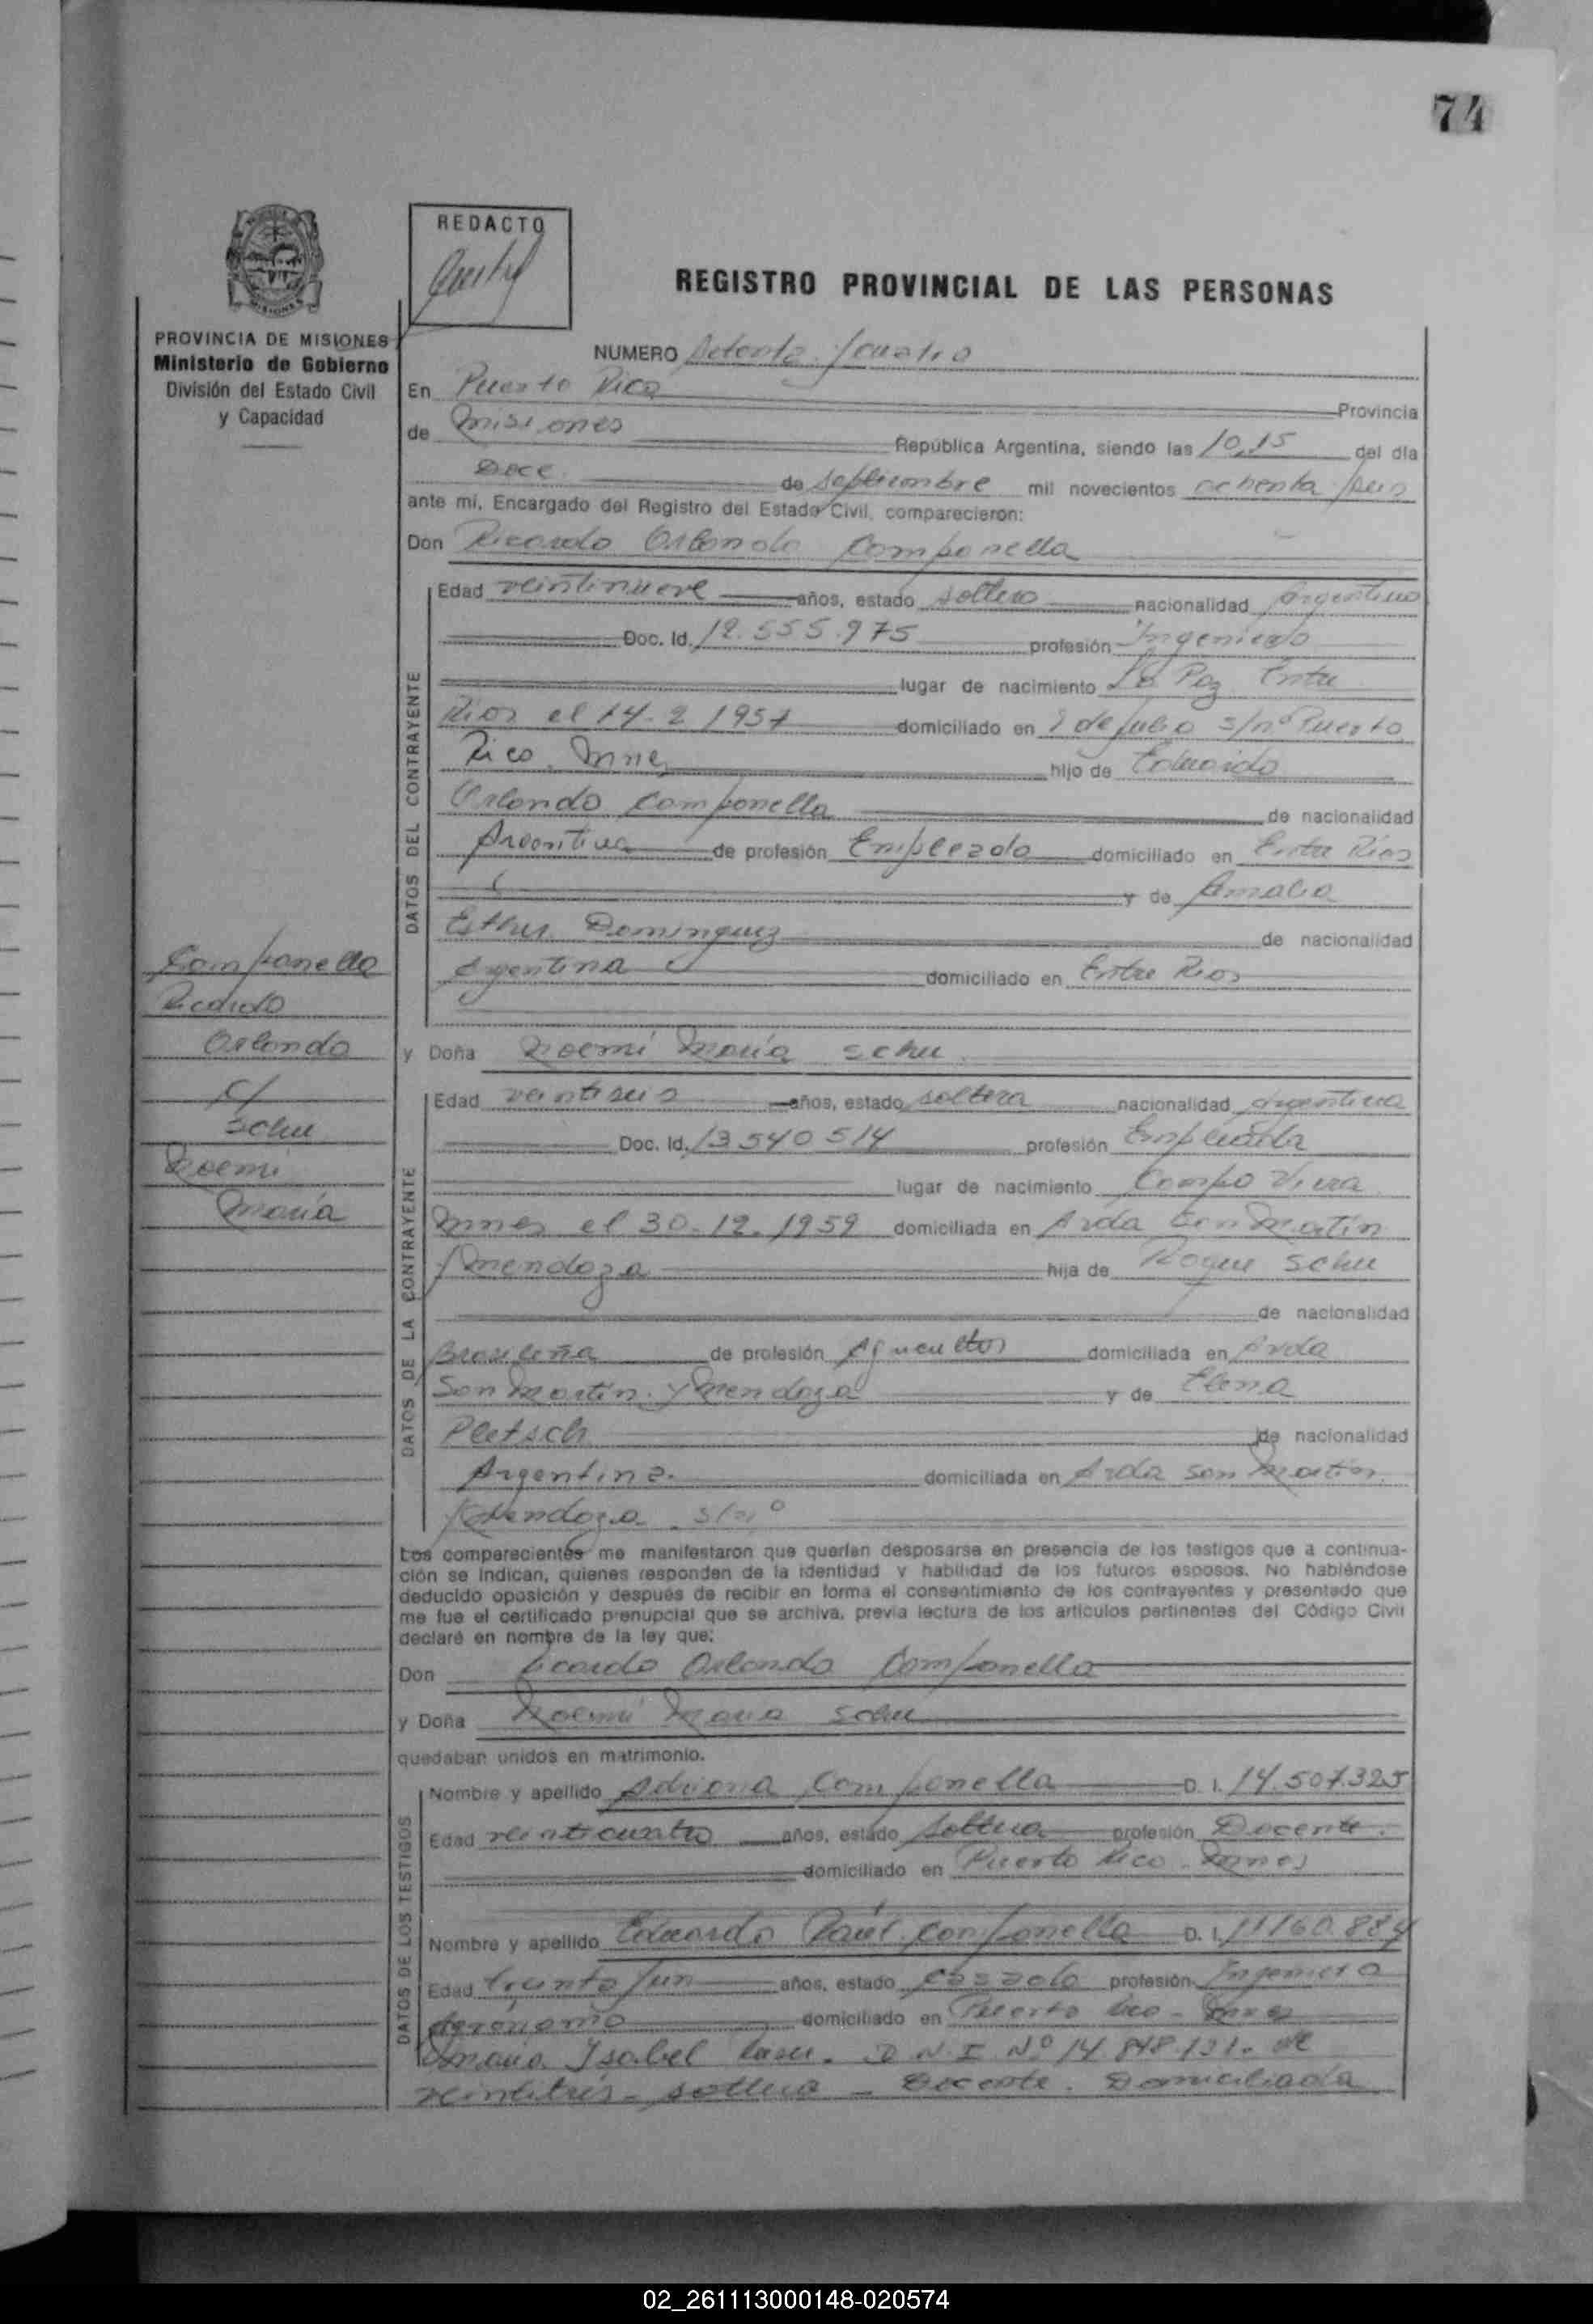 74
REDACTO
REGISTRO PROVINCIAL DE LAS PERSONAS
PROVINCIA DE MISIONES
Ministerio de Gobierno
División del Estado Civil
y Capacidad
NUMERO Setenta y cuatro
En Puerto Rico Provincia
de Misiones República Argentina, siendo las 10,15 del día
Doce de Septiembre mil novecientos ochenta y seis
ante mí, Encargado del Registro del Estado Civil, comparecieron:
Don Ricardo Orlando Campanella
DATOS DEL CONTRAYENTE
Edad veintinueve años, estado soltero nacionalidad argentino
Doc. Id. 12.555.975 profesión Ingeniero
lugar de nacimiento La Paz Entre
Rios el 14-2 1957 domiciliado en 9 de Julio s/nº Puerto
Rico. Mnes hijo de Eduardo
Orlando Campanella de nacionalidad
Argentina de profesión Empleado domiciliado en Entre Rios
y de Amalia
Esther Dominguez de nacionalidad
Argentina domiciliado en Entre Rios
Campanella
Ricardo
Orlando
c/
Schu
Noemi
María
y Doña Noemí María Schu
DATOS DE LA CONTRAYENTE
Edad veintiseis años, estado soltera nacionalidad argentina
Doc. Id. 13540514 profesión Empleada
lugar de nacimiento Campo Viera
Mnes el 30-12-1959 domiciliada en Avda San Martín
y Mendoza hija de Roque Schu
de nacionalidad
Brasileña de profesión Agricultor domiciliada en Avda
San Martín y Mendoza y de Elena
Pletsch de nacionalidad
Argentina. domiciliada en Avda San Martín
y Mendoza s/nº
Los comparecientes me manifestaron que querían desposarse en presencia de los testigos que a continua-
ción se indican, quienes responden de la identidad y habilidad de los futuros esposos. No habiéndose
deducido oposición y después de recibir en forma el consentimiento de los contrayentes y presentado que
me fue el certificado prenupcial que se archiva, previa lectura de los artículos pertinentes del Código Civil
declaré en nombre de la ley que:
Don Ricardo Orlando Campanella
y Doña Noemí María Schu
quedaban unidos en matrimonio.
DATOS DE LOS TESTIGOS
Nombre y apellido Adriana Campanella D. I. 14.507.325
Edad veinticuatro años, estado soltera profesión Docente.
domiciliado en Puerto Rico - Mnes
Nombre y apellido Eduardo Raúl Campanella D. I. 11160.884
Edad treinta y un años, estado casado profesión Ingeniero
Agronomo domiciliado en Puerto Rico - Mnes
María Isabel D.N.I Nº 14.848.121. de
veintitres - soltera - Docente. Domiciliada
02_261113000148-020574